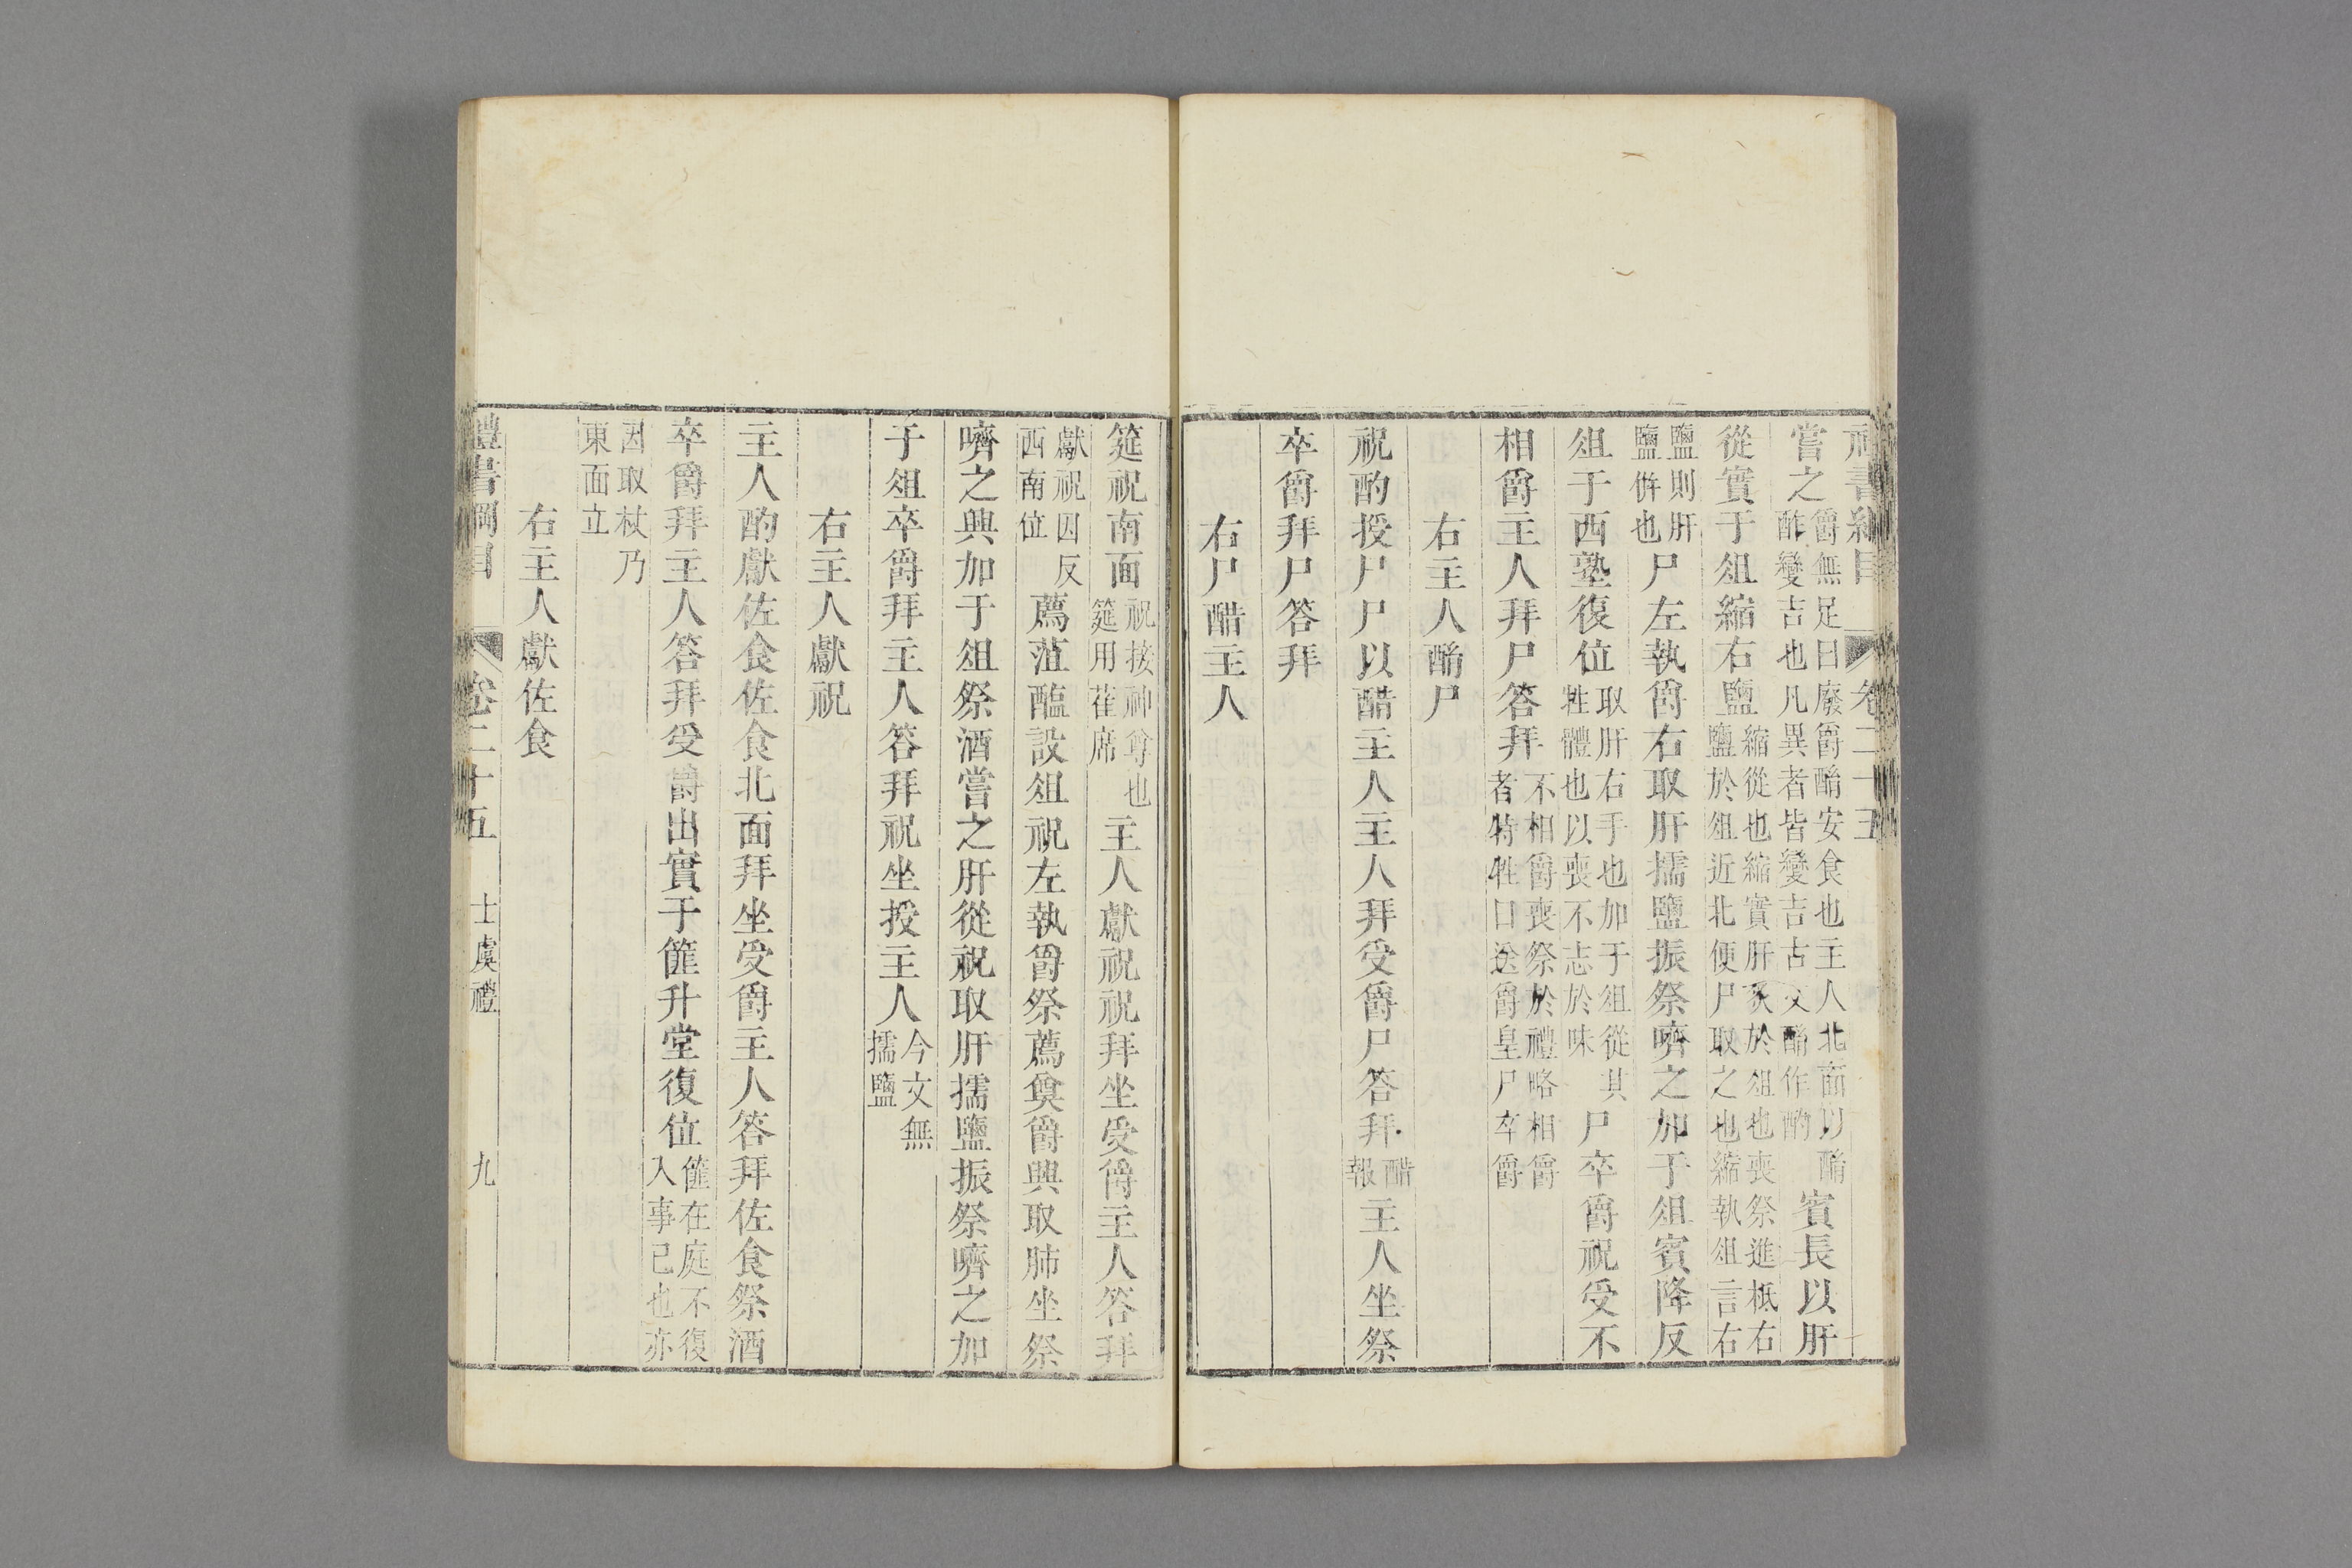 禮書綱目 卷二十五
嘗之爵無足曰廢爵酳安食也主人北面以酳酢變吉也凡異者皆變吉古文酳作酌賓長以肝
從實于俎縮右鹽縮從也縮實肝炙於俎也喪祭進柢右鹽於俎近北便尸取之也縮執俎言右
鹽則肝鹽併也尸左執爵右取肝擩鹽振祭嚌之加于俎賓降反
俎于西塾復位取肝右手也加于俎從其牲體也以喪不志於味尸卒爵祝受不
相爵主人拜尸答拜不相爵喪祭於禮略相爵者特牲曰送爵皇尸卒爵
右主人酳尸
祝酌授尸尸以醋主人主人拜受爵尸答拜醋報主人坐祭
卒爵拜尸答拜
右尸醋主人
筵祝南面祝接神尊也筵用萑席主人獻祝祝拜坐受爵主人答拜
獻祝因反西南位薦菹醢設俎祝左執爵祭薦奠爵興取肺坐祭
嚌之興加于俎祭酒嘗之肝從祝取肝擩鹽振祭嚌之加
于俎卒爵拜主人答拜祝坐授主人今文無擩鹽
右主人獻祝
主人酌獻佐食佐食北面拜坐受爵主人答拜佐食祭酒
卒爵拜主人答拜受爵出實于篚升堂復位篚在庭不復入事已也亦
因取杖乃東面立
右主人獻佐食
禮書綱目 卷二十五 士虞禮 九